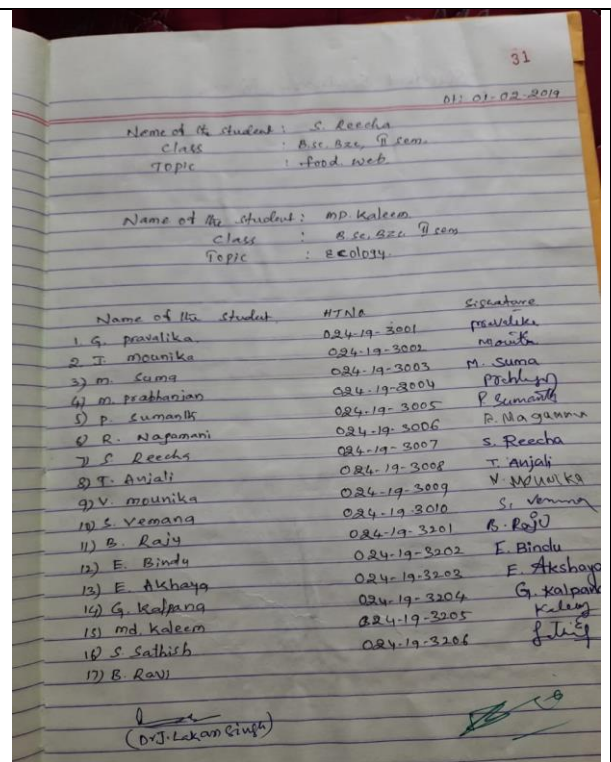 31
Dt: 01-02-2019
Name of the student : S. Reecha
Class : B.sc. Bzc, II sem.
Topic : food web
Name of the student : MD. Kaleem
Class : B.sc, Bzc, II sem
Topic : Ecology.
Name of the student HTNo Signature
1. G. pravalika 024-19-3001 pravalika
2 T. mounika 024-19-3002
3) m. Suma 024-19-3003 M. Suma
4) m. prabhanjan 024-19-3004
5) p. Sumanth 024-19-3005 P Sumanth
6) R. Nagamani 024-19-3006
7) S Reecha 024-19-3007 S. Reecha
8) T. Anjali 024-19-3008 T. Anjali
9) V. mounika 024-19-3009 V. MOUNIKA
10) S. Vemana 024-19-3010
11) B. Raju 024-19-3201 B. Raju
12) E. Bindu 024-19-3202 E. Bindu
13) E. Akhaya 024-19-3203 E. Akshaya
14) G. Kalpana 024-19-3204 G. Kalpana
15) md. Kaleem 024-19-3205 Kaleem
16) S Sathish 024-19-3206
17) B. Ravi
(Dr J. Lakan Singh)